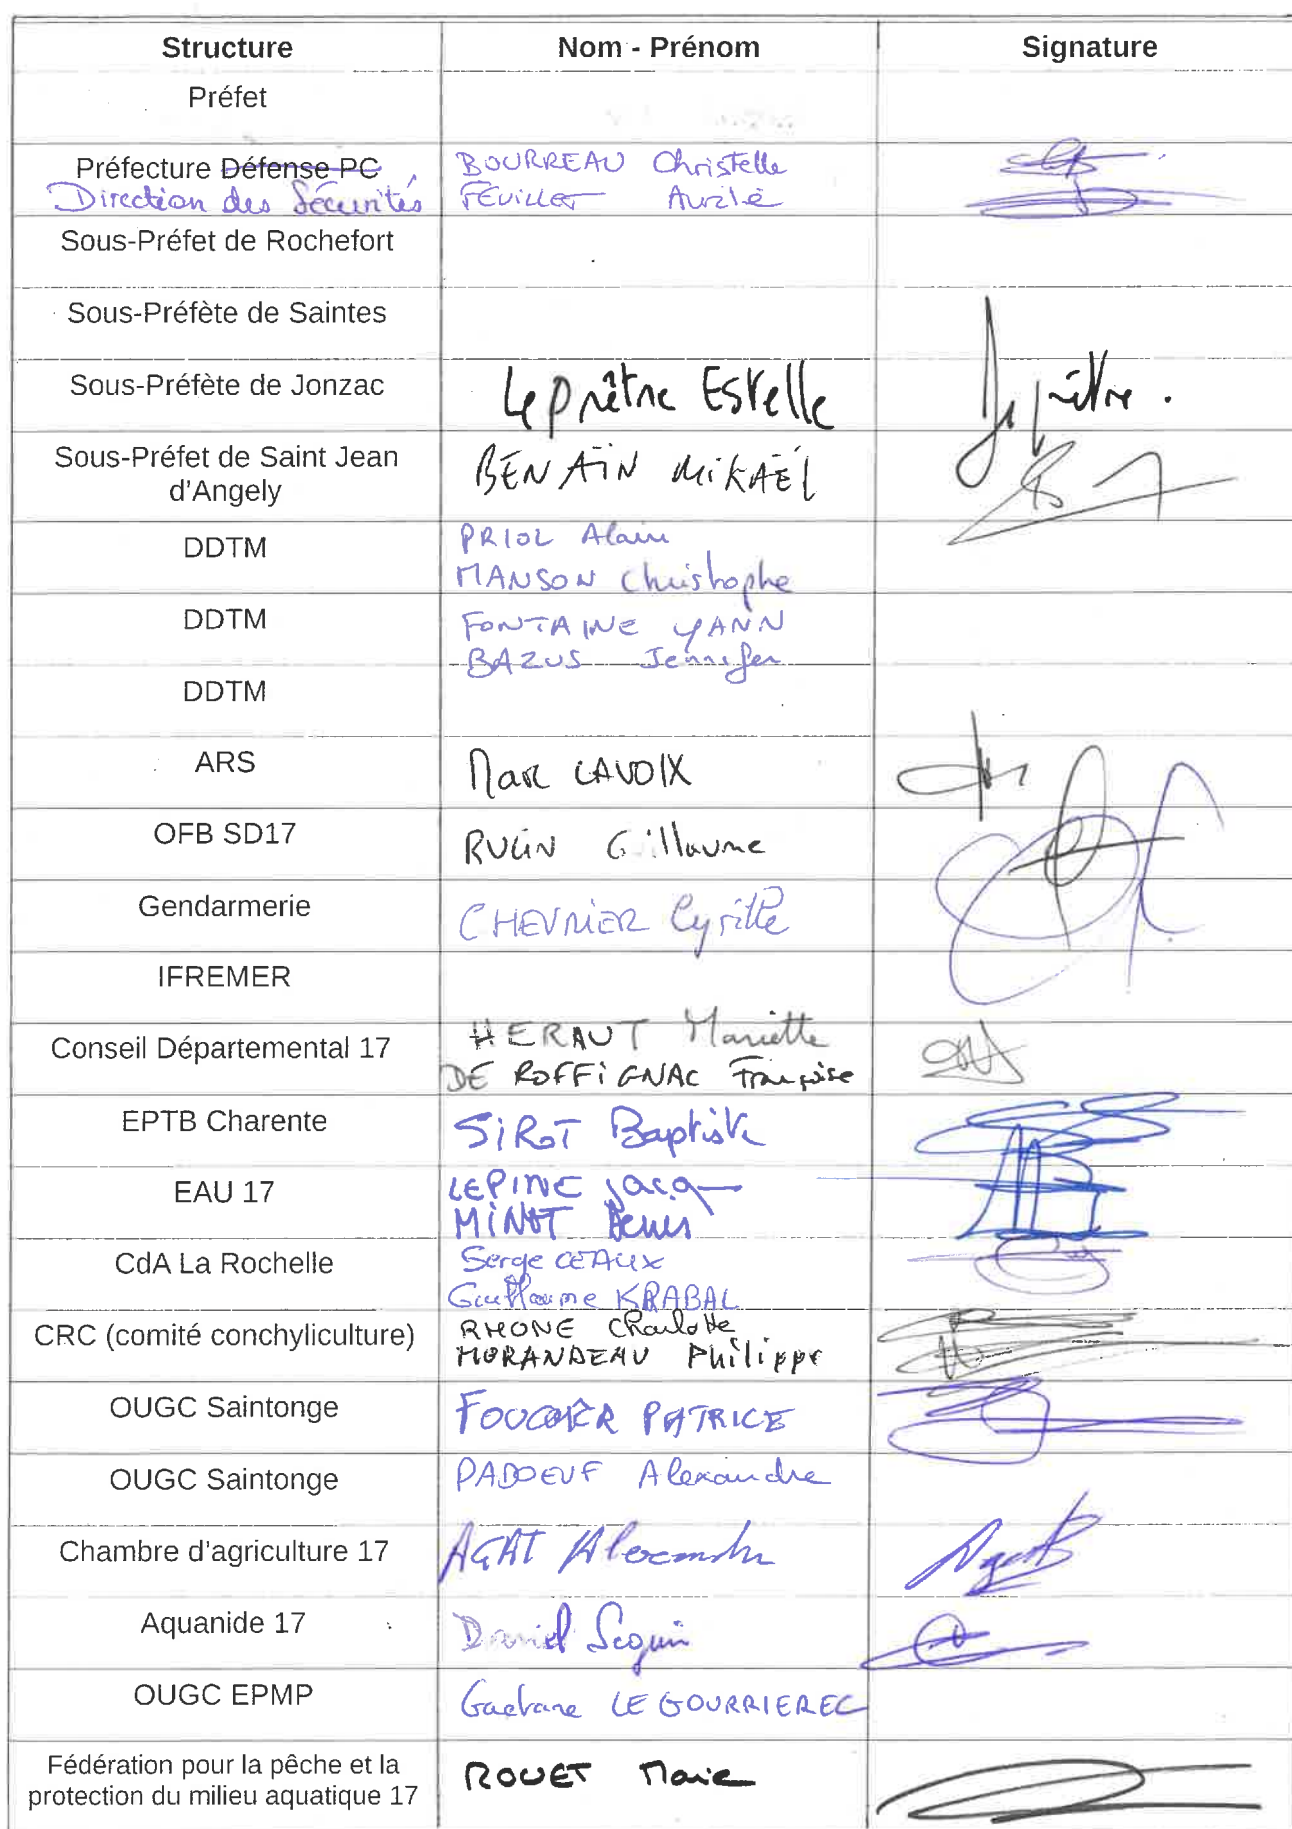 Structure Nom - Prénom Signature
Préfet
Préfecture Défense PC BOURREAU Christelle
Direction des Sécurités FEUILLET
Sous-Préfet de Rochefort
Sous-Préfète de Saintes
Sous-Préfète de Jonzac Leprêtre Estelle
Sous-Préfet de Saint Jean BENAÏN MIKAËL
d'Angely
DDTM PRIOL Alain
MANSON Christophe
DDTM FONTAINE YANN
BAZUS Jennifer
DDTM
ARS Marc LAVOIX
OFB SD17 RULIN Guillaume
Gendarmerie CHEVRIER Cyrille
IFREMER
Conseil Départemental 17 HERAUT Mariette
DE ROFFIGNAC Françoise
EPTB Charente SIROT Baptiste
EAU 17 LEPINE Jacq
MINOT Denis
CdA La Rochelle Serge CEAUX
Guillaume KRABAL
CRC (comité conchyliculture) RHONE Charlotte
MORANDEAU Philippe
OUGC Saintonge FOUCHER PATRICE
OUGC Saintonge PADOEUF Alexandre
Chambre d'agriculture 17 AGAT Alexandre
Aquanide 17 Daniel Seguin
OUGC EPMP Gaetane LE GOURRIEREC
Fédération pour la pêche et la ROUET Marie
protection du milieu aquatique 17